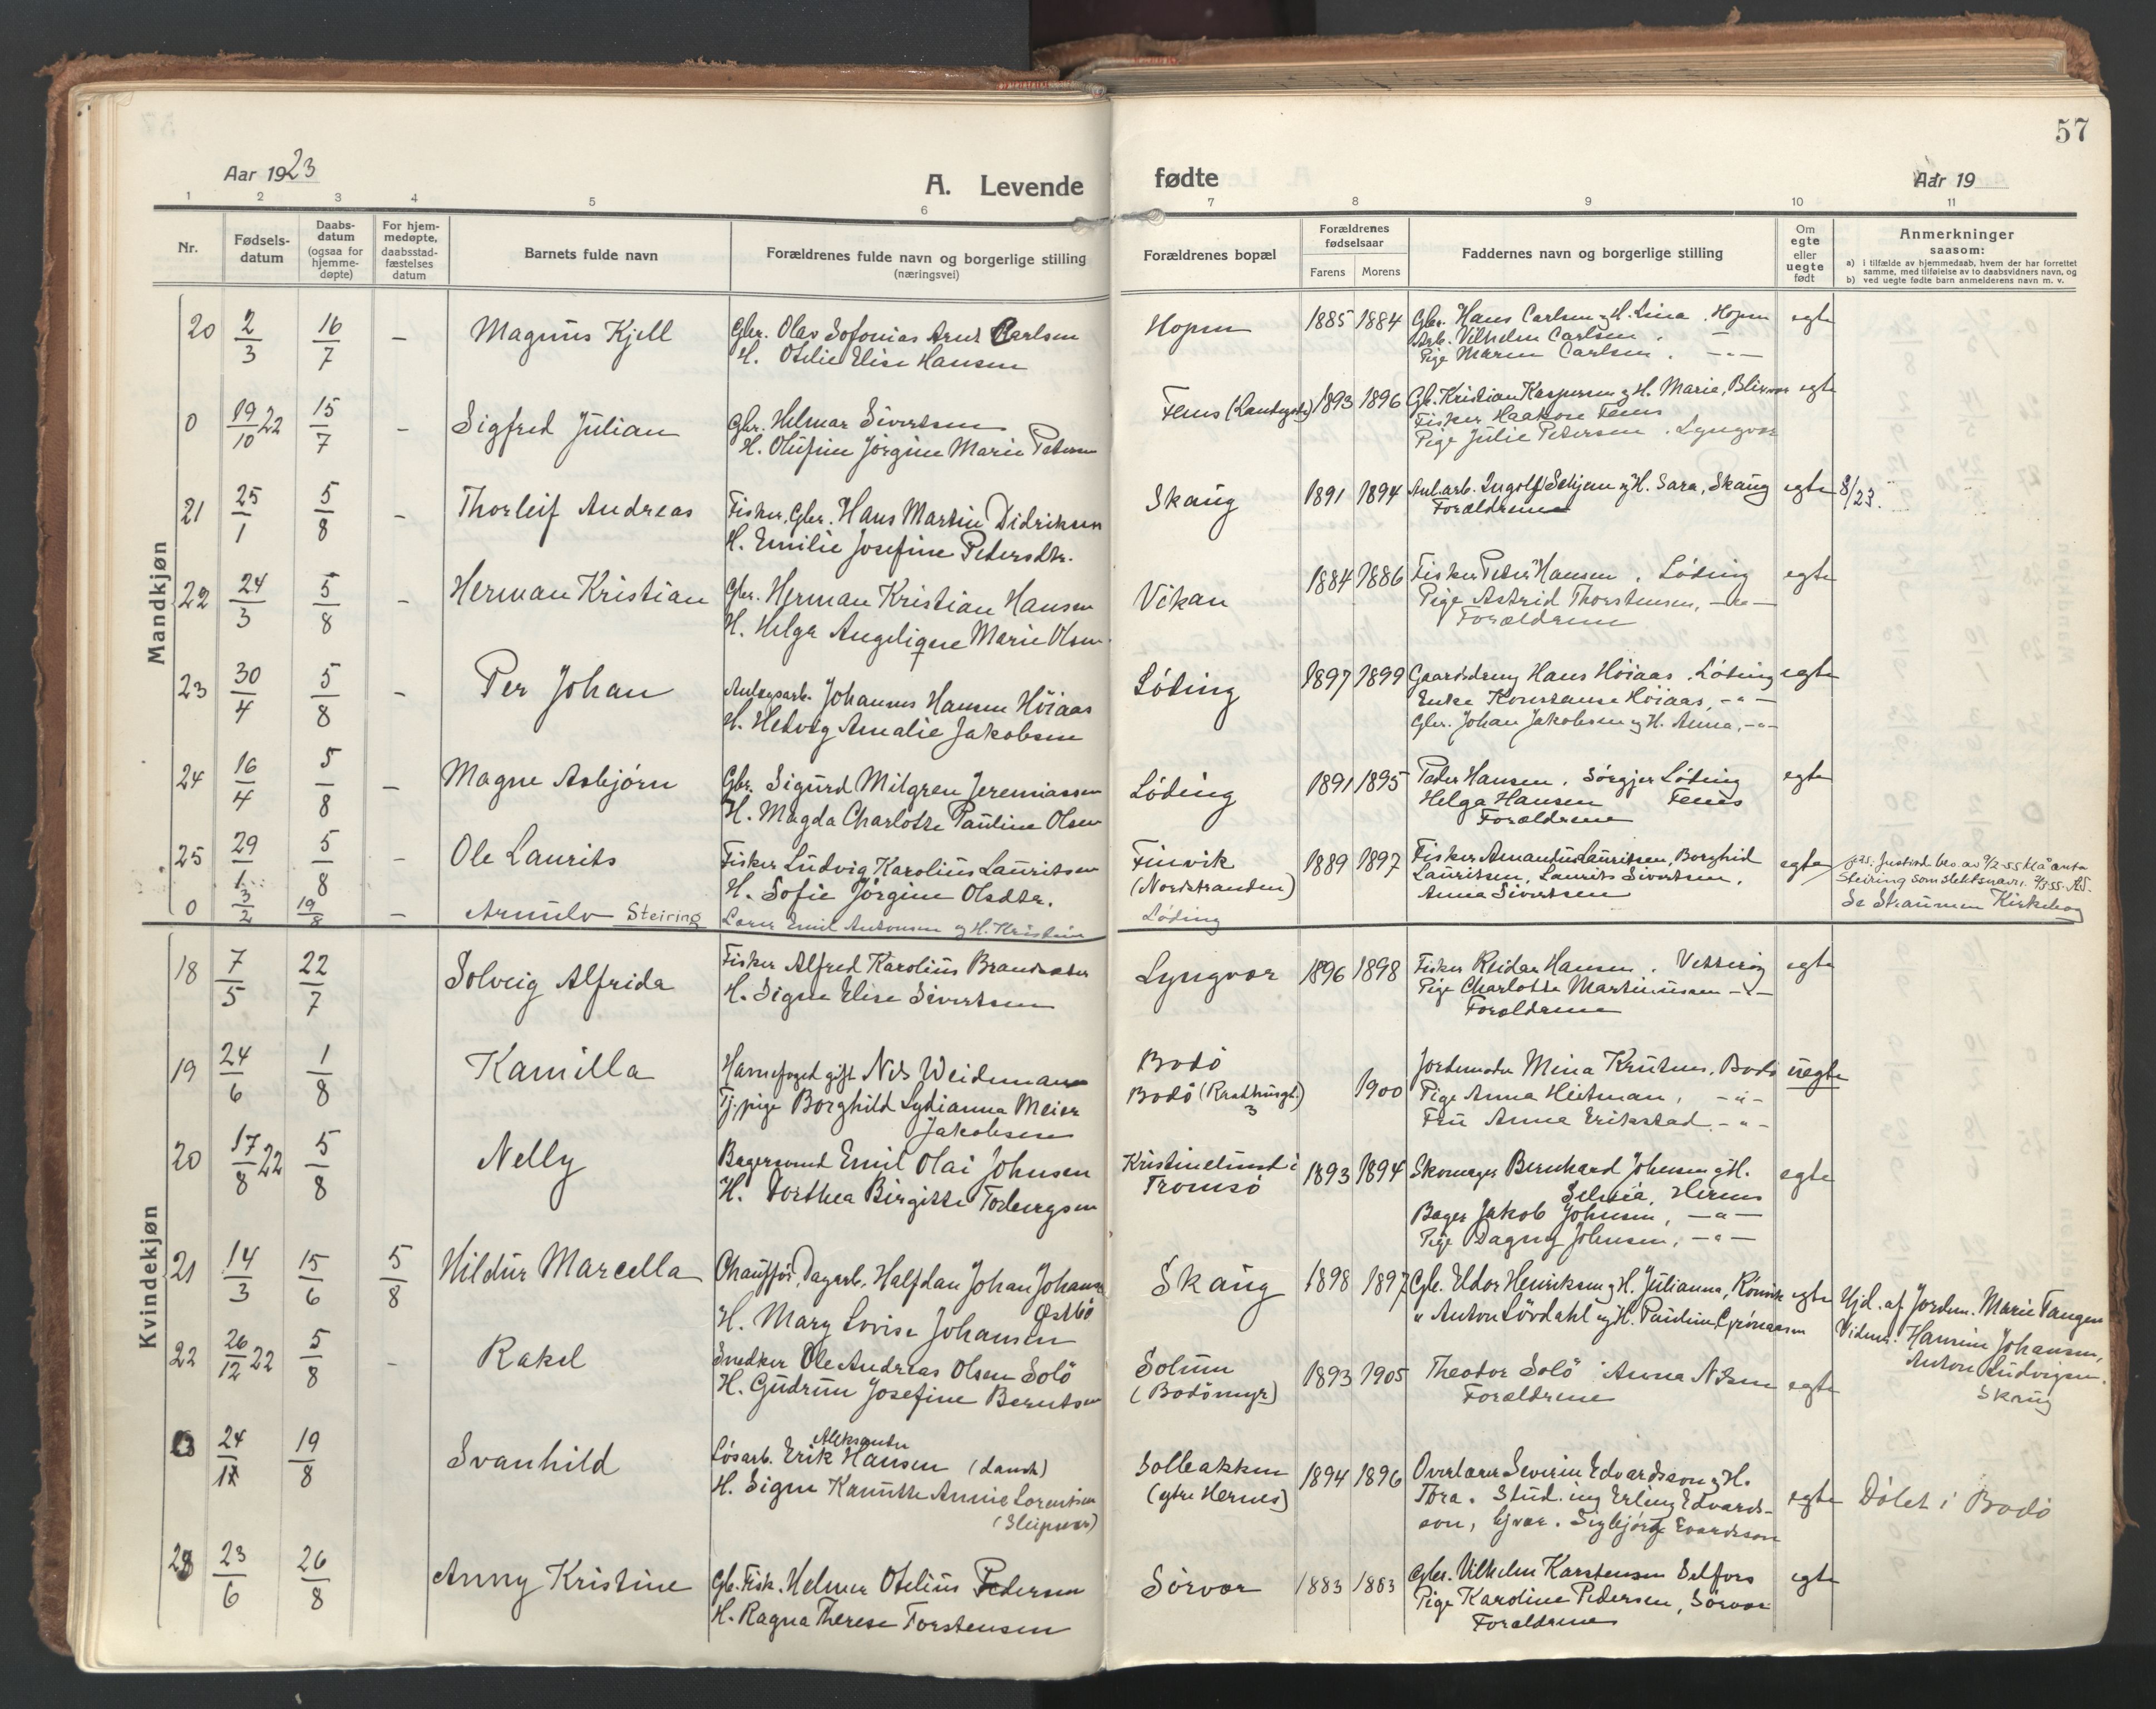 57
Aar 1923
A. Levende
fødte
Aar 19
1 2 3 4 5 6 7 8 9 10 11
Nr.
Fødsels-
datum
Daabs-
datum
(ogsaa for
hjemme-
døpte)
For hjem-
medøpte,
daabsstad-
fæstelses
datum
Barnets fulde navn
Forældrenes fulde navn og borgerlige stilling
(næringsvei)
Forældrenes bopæl
Forældrenes
fødselsaar
Farens Morens
Faddernes navn og borgerlige stilling
Om
egte
eller
uegte
født
Anmerkninger
saasom:
a) i tilfælde av hjemmedaab, hvem der har forrettet
samme, med tilføielse av to daabsvidners navn, og
b) ved uegte fødte barn anmelderens navn m. v.
Mandkjøn
20 2/3 16/7 – Magnus Kjell Gbr. Olav Sofonias Arnt Carlsen Hopen 1885 1884 Gbr. Hans Carlsen og H. Lina. Hopen egte
H. Otelie Elise Hansen Arb. Vilhelm Carlsen. —
Pige Maren Carlsen. –"–
0 19/10 22 15/7 – Sigfred Julian Gbr. Helmar Sivertsen Fenes 1893 1896 Gb. Kristian Kaspersen og H. Marie, egte
H. Olufine Jørgine Marie Petersen Fisker Haakon Fenes
Pige Julie Petersen. Lyngvær
21 25/1 5/8 – Thorleif Andreas Fisker, Gbr. Hans Martin Didriksen Skaug 1891 1894 Anl.arb. Ingolf Schjem og H. Sara, Skaug egte 8/23.
H. Emilie Josefine Petersdtr. Forældrene
22 24/3 5/8 – Herman Kristian Gbr. Herman Kristian Hansen Vikan 1884 1886 Fisker Peter Hansen. Løding egte
H. Helga Angelique Marie Olsen Pige Astrid Thorstensen, –"–
Forældrene
23 30/4 5/8 – Per Johan Anlegsarb. Johannes Hansen Höiaas Löding 1897 1899 Gaardsdreng Hans Höiaas. Löding egte
H. Hedvig Amalie Jakobsen Enke Konstanse Höiaas, –"–
Gbr. Johan Jakobsen og H. Anna, –"–
24 16/4 5/8 – Magne Asbjørn Gbr. Sigurd Milgren Jeremiassen Löding 1891 1895 Peder Hansen. Sørgjer Löding egte
H. Magda Charlotte Pauline Olsen Helga Hansen Fenes
Forældrene
25 29/1 5/8 – Ole Laurits Fisker Ludvig Karolius Lauritsen Finvik 1889 1897 Fisker Amandus Lauritsen, Borghild egte
H. Sofie Jörgine Olsdtr. (Nordstranden) Lauritsen, Laurits Sivertsen,
Anna Sivertsen
0 3/2 19/8 – Arnulv Steiring Lærer Emil Antonsen og H. Kristine Löding
Steiring som slektsnavn.
Se Straumen Kirkebog
Kvindekjøn
18 7/5 22/7 Solveig Alfrida Fisker Alfred Karolius Brandsæter Lyngvær 1896 1898 Fisker Reidar Hansen. egte
H. Signe Elise Sivertsen Pige Charlotte Martinussen –"–
Forældrene
19 24/6 1/8 Kamilla Havnefoged gift Nils Weidemann Bodö Jordemoder Mina Knutsen. Bodö uegte
Tj.pige Borghild Lydianna Meier Bodö (Raadhusgt. 1900 Pige Anna Heitman, –"–
Jakobsen 3) Fru Anna Erikstad –"–
20 17/8 22 5/8 Nelly Bagersvend Emil Olai Johnsen Kristinelund i 1893 1894 Skomager Bernhard Johnsen og H. egte
H. Dorthea Birgitte Torbergsen Tromsö Selmia, Hernes
Bager Jakob Johnsen, –"–
Pige Dagny Johnsen, –"–
21 14/3 15/6 5/8 Hildur Marcella Chauffør, Dagarb. Halfdan Johan Johansen Skaug 1898 1897 Gbr. Eldor Henriksen og H. Julianna, Rönvik egte Hjd. af Jordm. Marie Tangen
Østbö " Anton Lövdahl og H. Pauline, Grönaasen Vidner: Hansine Johansen,
H. Mary Lovise Johansen Anton Ludvigsen,
Skaug
22 26/12 22 5/8 – Rakel Snedker Ole Andreas Olsen Solö Solum 1893 1905 Theodor Solö Anna Nilsen egte
H. Gudrun Josefine Berntsen (Bodömyr) Forældrene
24/1 19/8 Svanhild Løsarb. Erik Aleksander Hansen (dansk) Solbakken 1894 1896 Overlærer Severin Edvardsson og H. egte Döbt i Bodö
H. Signe Kanutte Annie Lorentsen (ytre Hernes) Tora. Stud. ing Erling Edvards-
son,
23/6 26/8 Anny Kristine Gb. Fisk. Helmer Otelius Pedersen Sörvær 1883 1883 Gbr. Vilhelm Karstensen Selfors egte
H. Ragna Therese Torstensen Pige Karoline Pedersen, Sörvær
Forældrene